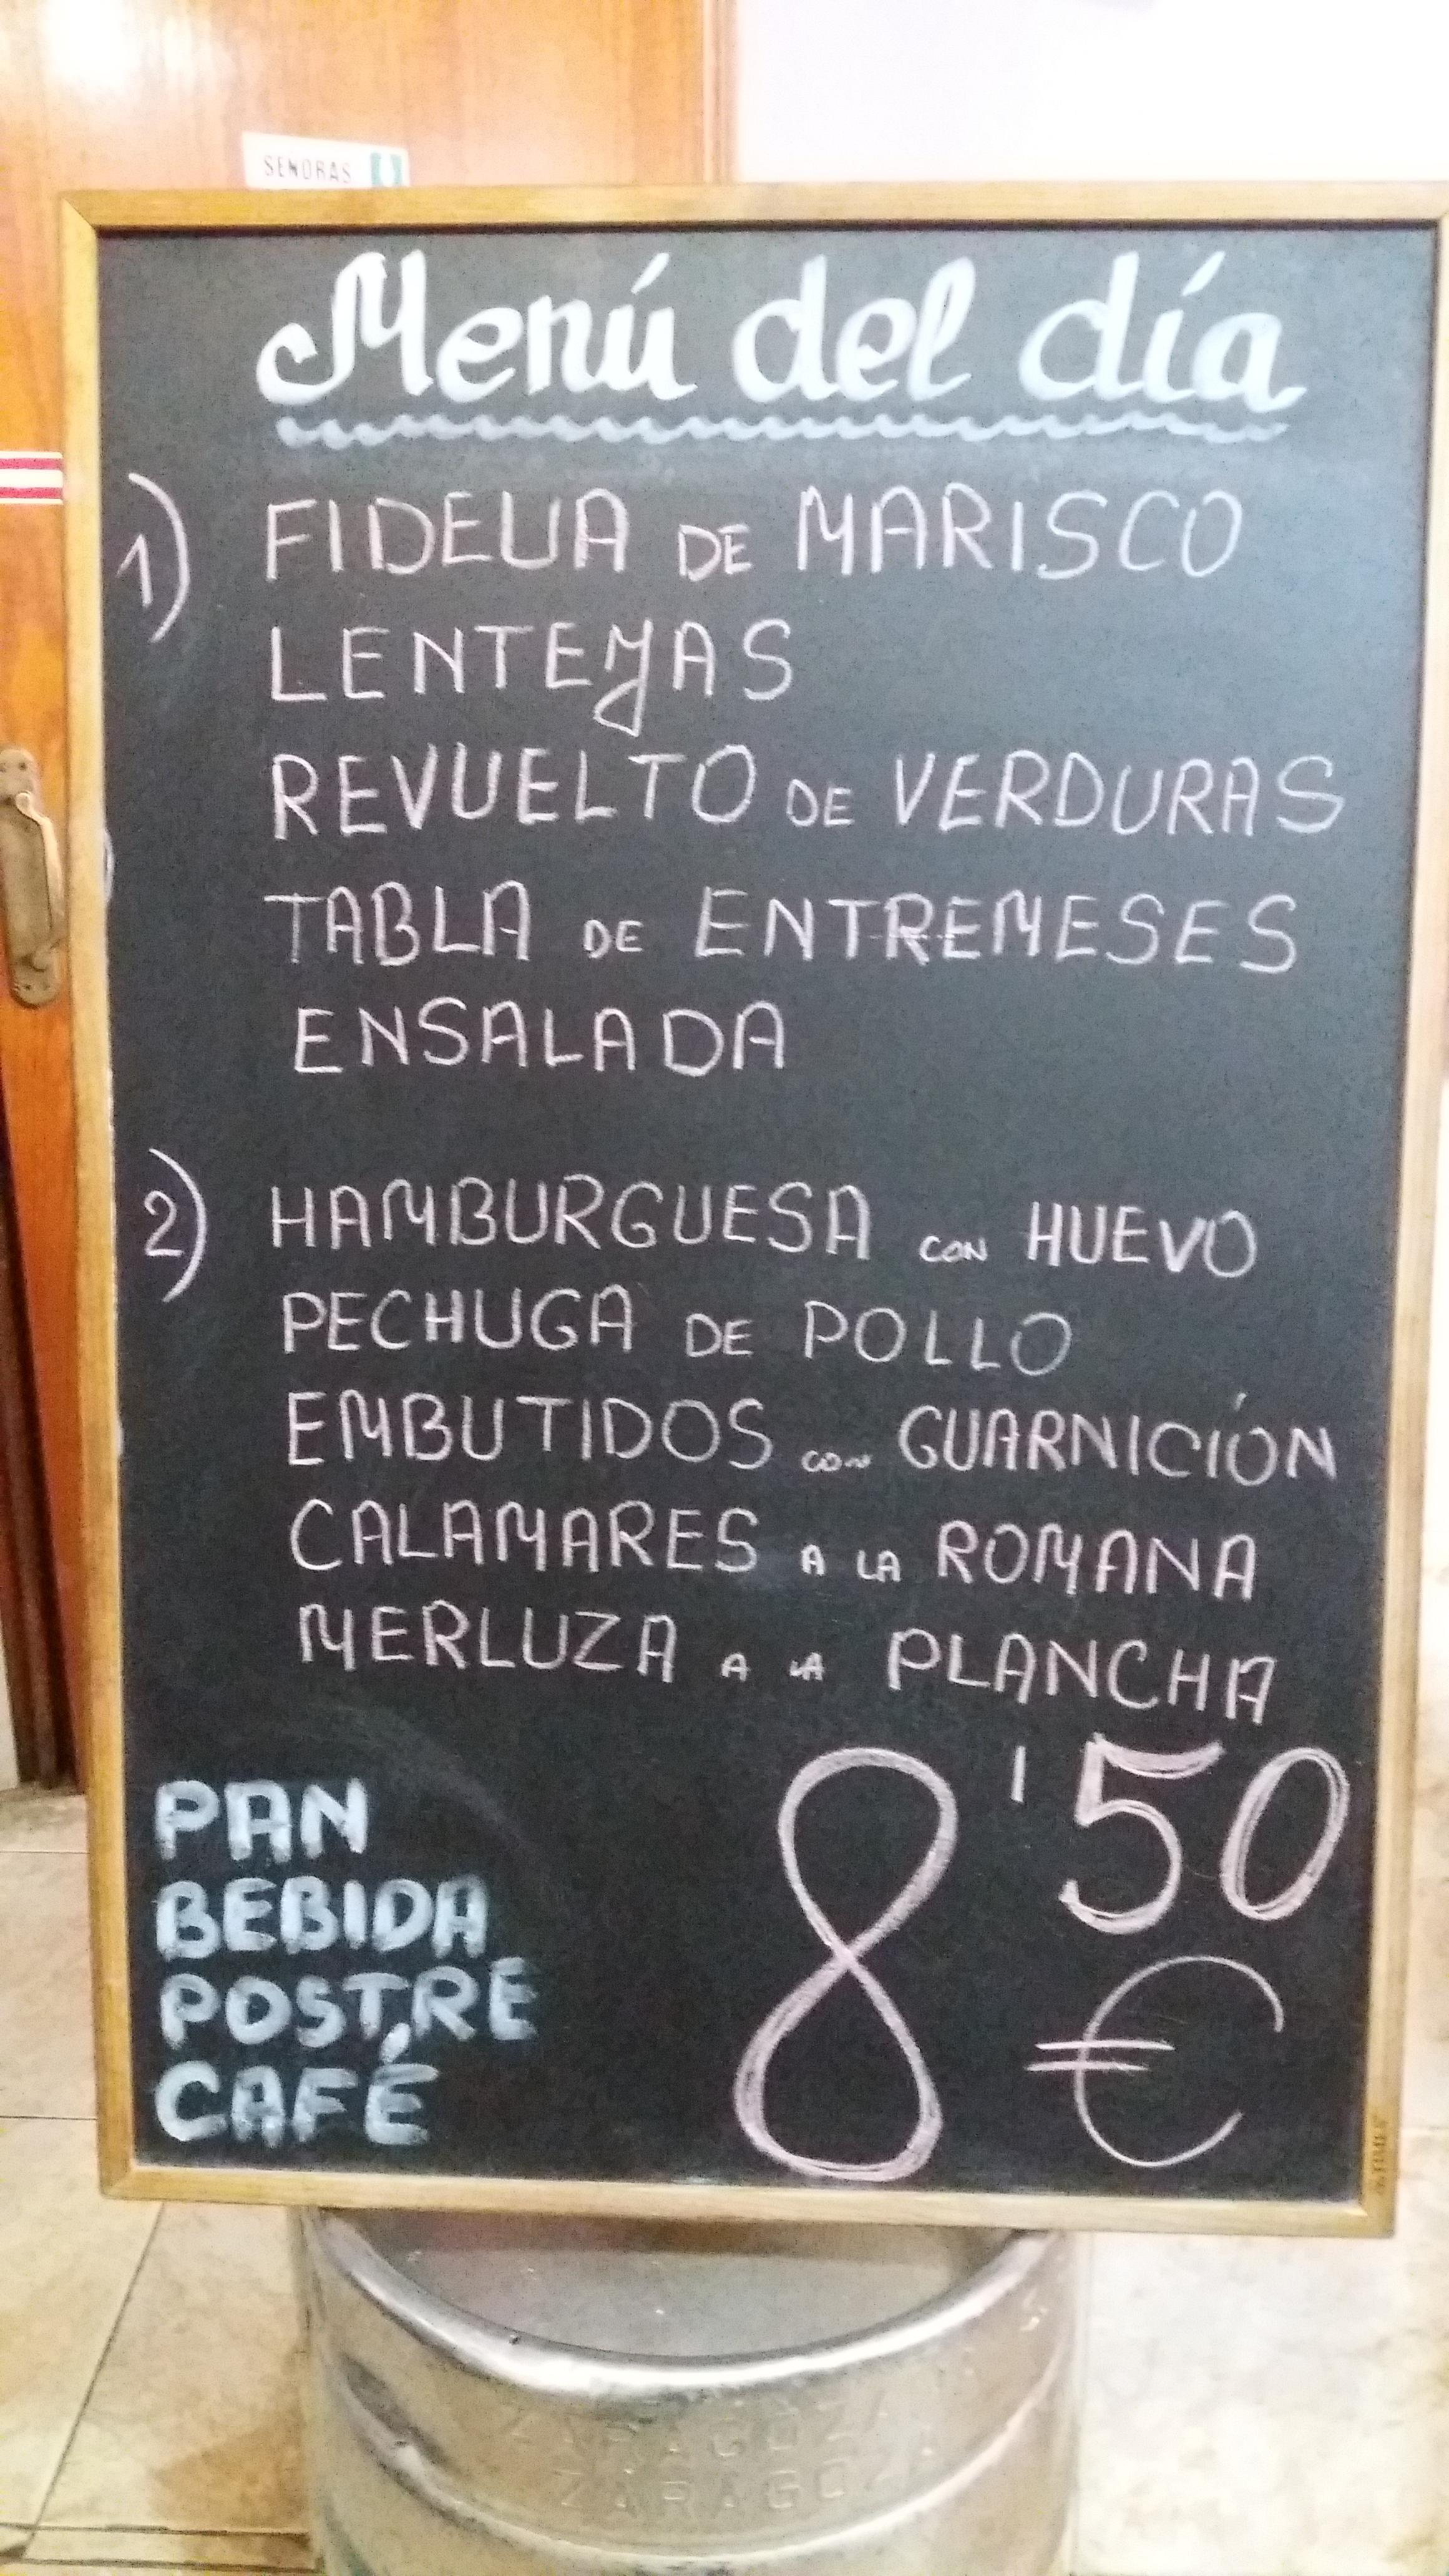 SEÑORAS
Menú del día
1) FIDEUA DE MARISCO
LENTEJAS
REVUELTO DE VERDURAS
TABLA DE ENTREMESES
ENSALADA
2) HAMBURGUESA CON HUEVO
PECHUGA DE POLLO
EMBUTIDOS CON GUARNICIÓN
CALAMARES A LA ROMANA
MERLUZA A LA PLANCHA
8'50 €
PAN
BEBIDA
POSTRE
CAFÉ
ZARAGOZA
ZARAGOZA